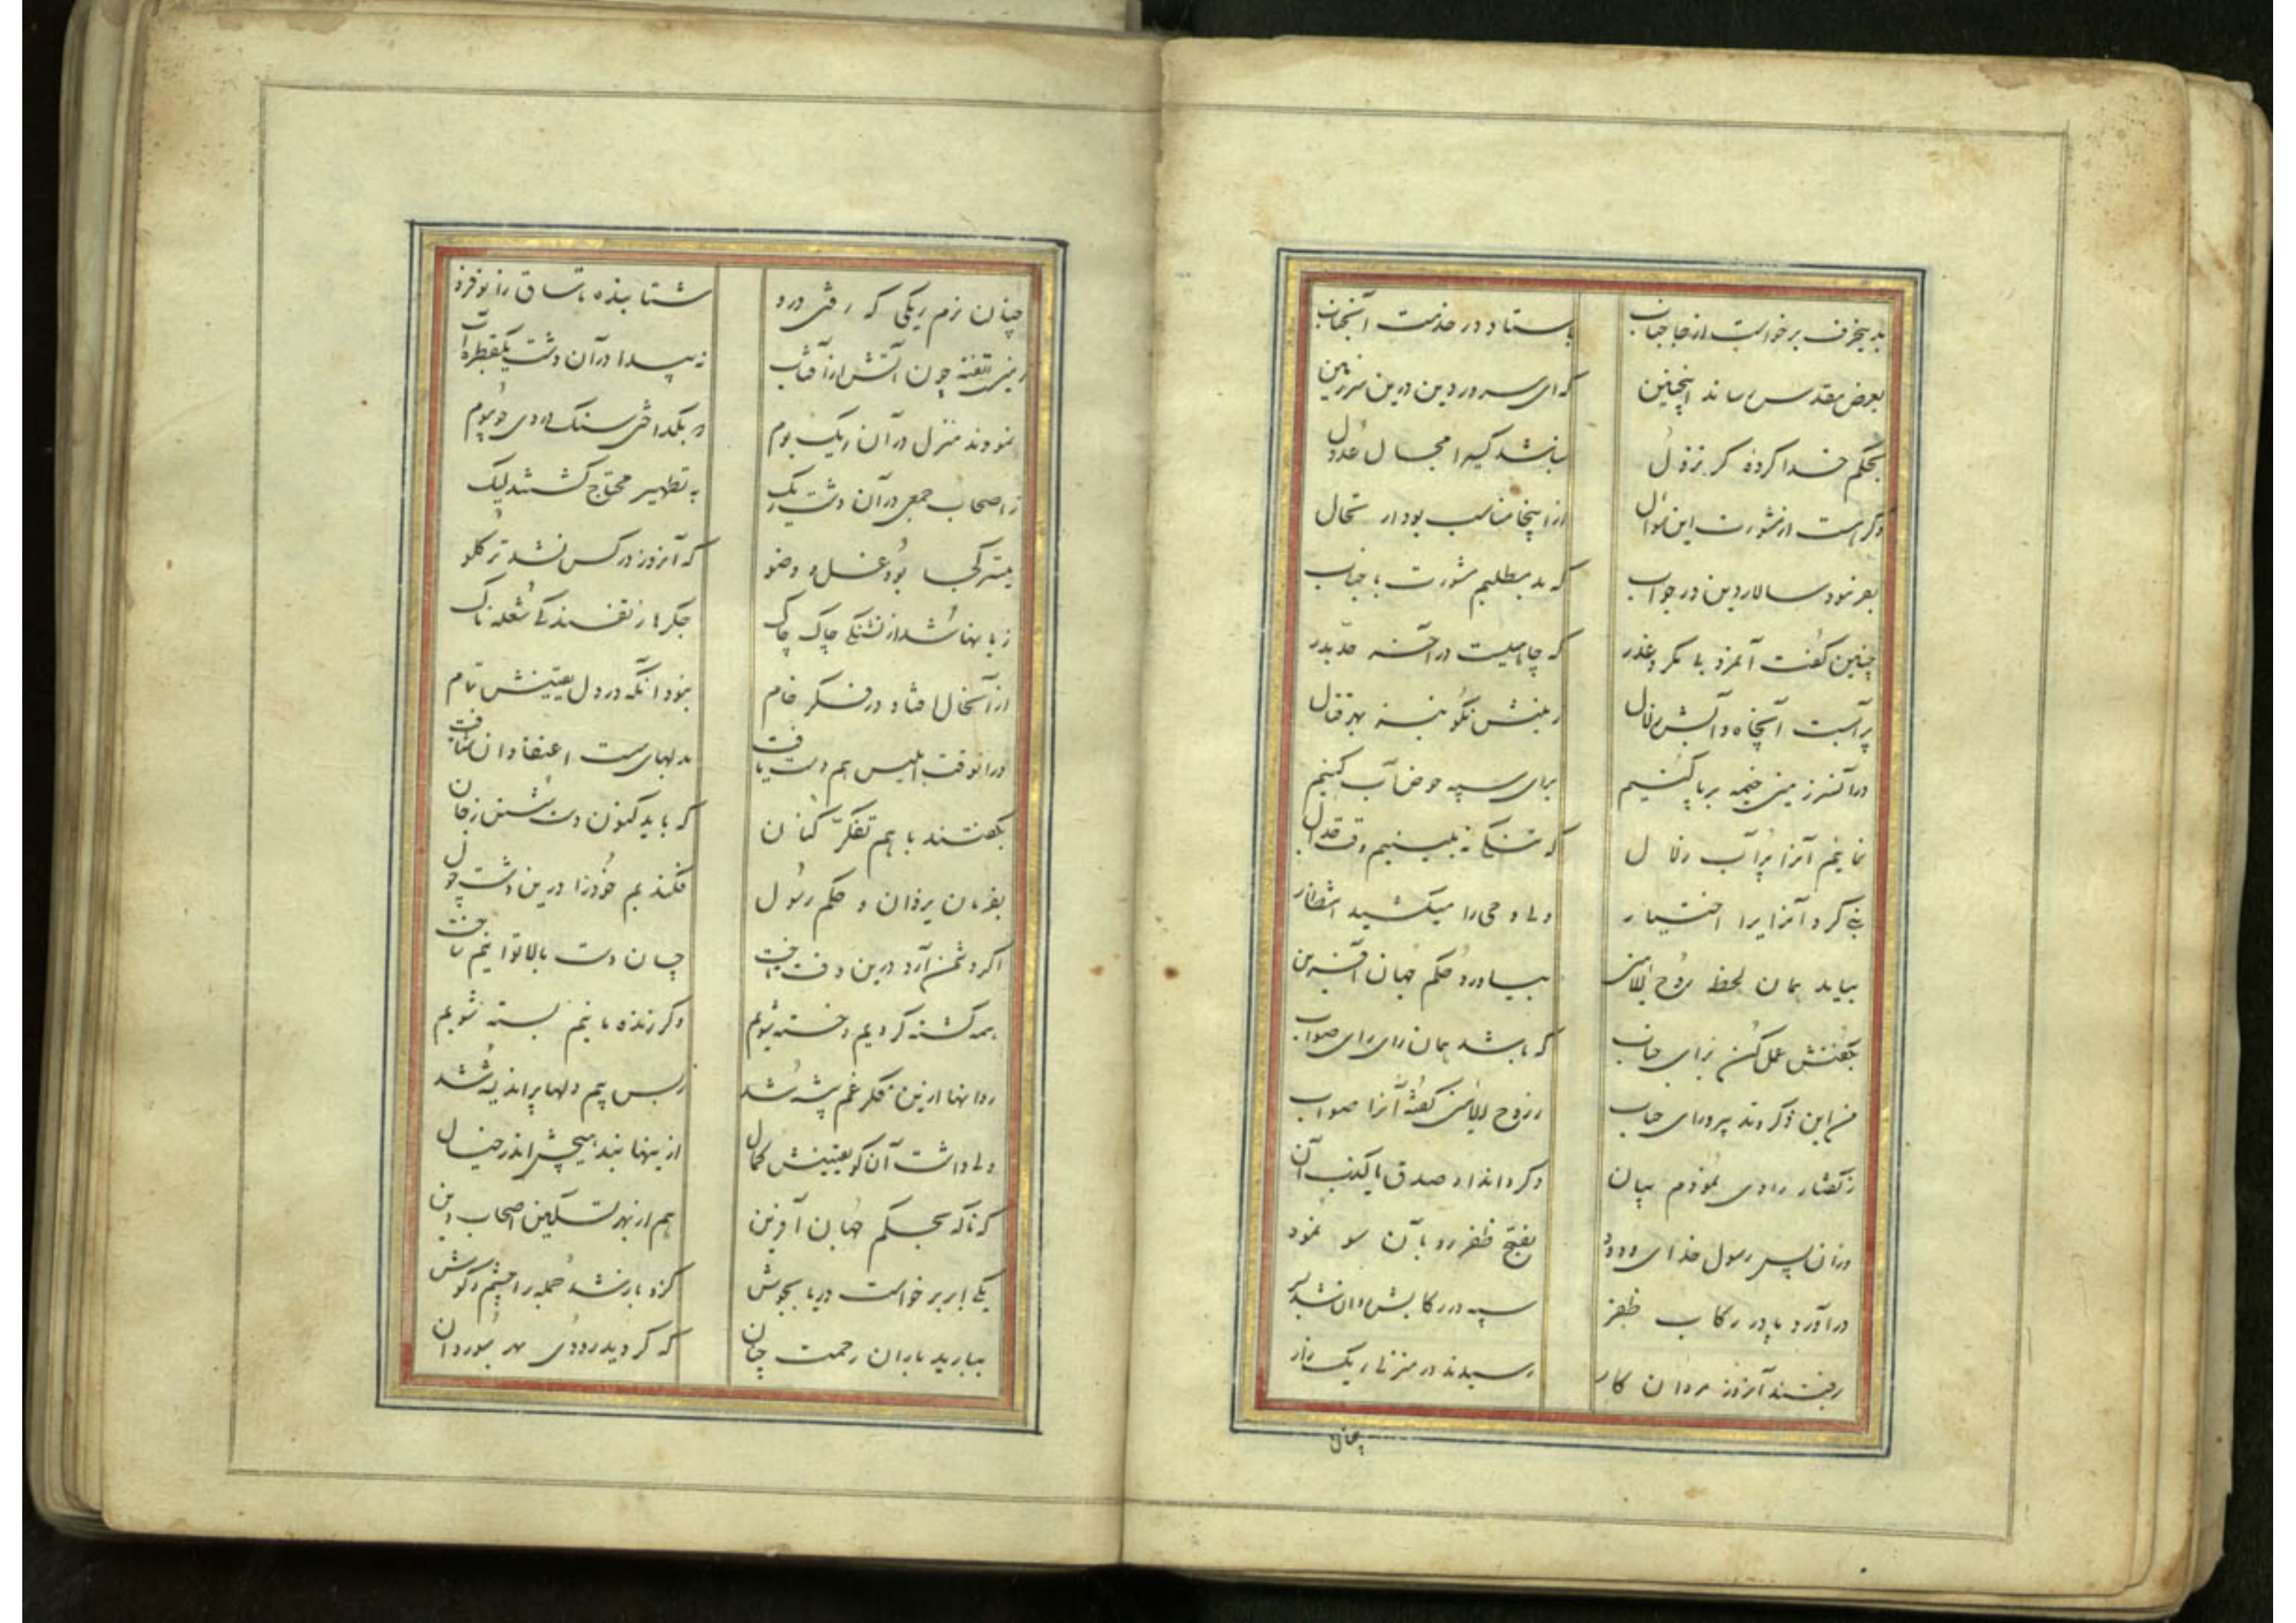 بدینحرف برخواست از جا حباب باستاد در خدمت آنجناب
بعرض مقدس رساند اینچنین که ای سرور دین درین سرزمین
بحکم خدا کرده گر نزول نباشد کسی را مجال عدول
وگر هست از مشورت این سوال از اینجا مناسب بود ارتحال
بفرمود سالار دین در جواب که بد مطلبم مشورت با حباب
چنین گفت آنمرد بی مکر و غدر که چاهیست در آخر حد بدر
پر آبست آنچاه و آبش زلال زمینش نکو نیز بهر قتال
در آنسرزمین خیمه بر پا کنیم برای سپه حوض آب کنیم
نمائیم آنرا پر آب زلال که تشنگی نه بینیم وقت قتال
نبی کرد آنرا برا اختیار ولی وحی را میکشید انتظار
بیامد همان لحظه روح الامین بیاورد حکم جهان آفرین
بگفتش عمل کن برای حباب که باشد همان رای رای صواب
من این ذکر و تدبیر و رای حباب ز روح الامین گفته آنرا صواب
ز گفتار راوی نمودم بیان دگر داند او صدق یا کذب آن
وزان پس رسول خدای ودود بفتح ظفر رو بآن سو نمود
در آورد پا در رکاب ظفر سپه در رکابش روان شد
برفتند آنروز مردان کار رسیدند در منزلی ریگ زار
چنان
چنان نرم ریگی که رفتی درو شتابنده تا ساق زانو فرو
زمین تفته چون آتش از آفتاب نه پیدا در آن دشت یکقطره آب
نمودند منزل در آن ریگ بوم که بگداختی سنگ در وی چو موم
ز اصحاب جمعی در آن دشت ریگ به تطهیر محتاج گشتند لیک
میسر کجا بود غسل و وضو که آنروز در کس نشد تر گلو
زبانها شد از تشنگی چاک چاک جگرها ز تفسندگی شعله ناک
از آنحال افتاد در فکر خام نبود آنکه در دل یقینش تمام
در انوقت ابلیس هم دست یافت بدلهای سست اعتقادان شتافت
بگفتند با هم تفکر کنان که باید کنون دست شستن ز جان
بفرمان یزدان و حکم رسول فکندیم خود را درین دشت هول
اگر دشمن آرد درین وقت تاخت چسان دست بالا توانیم تاخت
همه کشته گردیم و خسته شویم وگر زنده مانیم بسته شویم
روانها ازین فکر غم پیشه شد ز بس بیم دلها پر اندیشه شد
ولی داشت آن کو یقینش کمال ازینها نبد هیچش اندر خیال
که ناگه بحکم جهان آفرین هم از بهر تسکین اصحاب دین
یکی ابر برخواست دریا بجوش کزو باز شد جمله را چشم و گوش
ببارید باران رحمت چنان که گردید رودی بهر سو روان